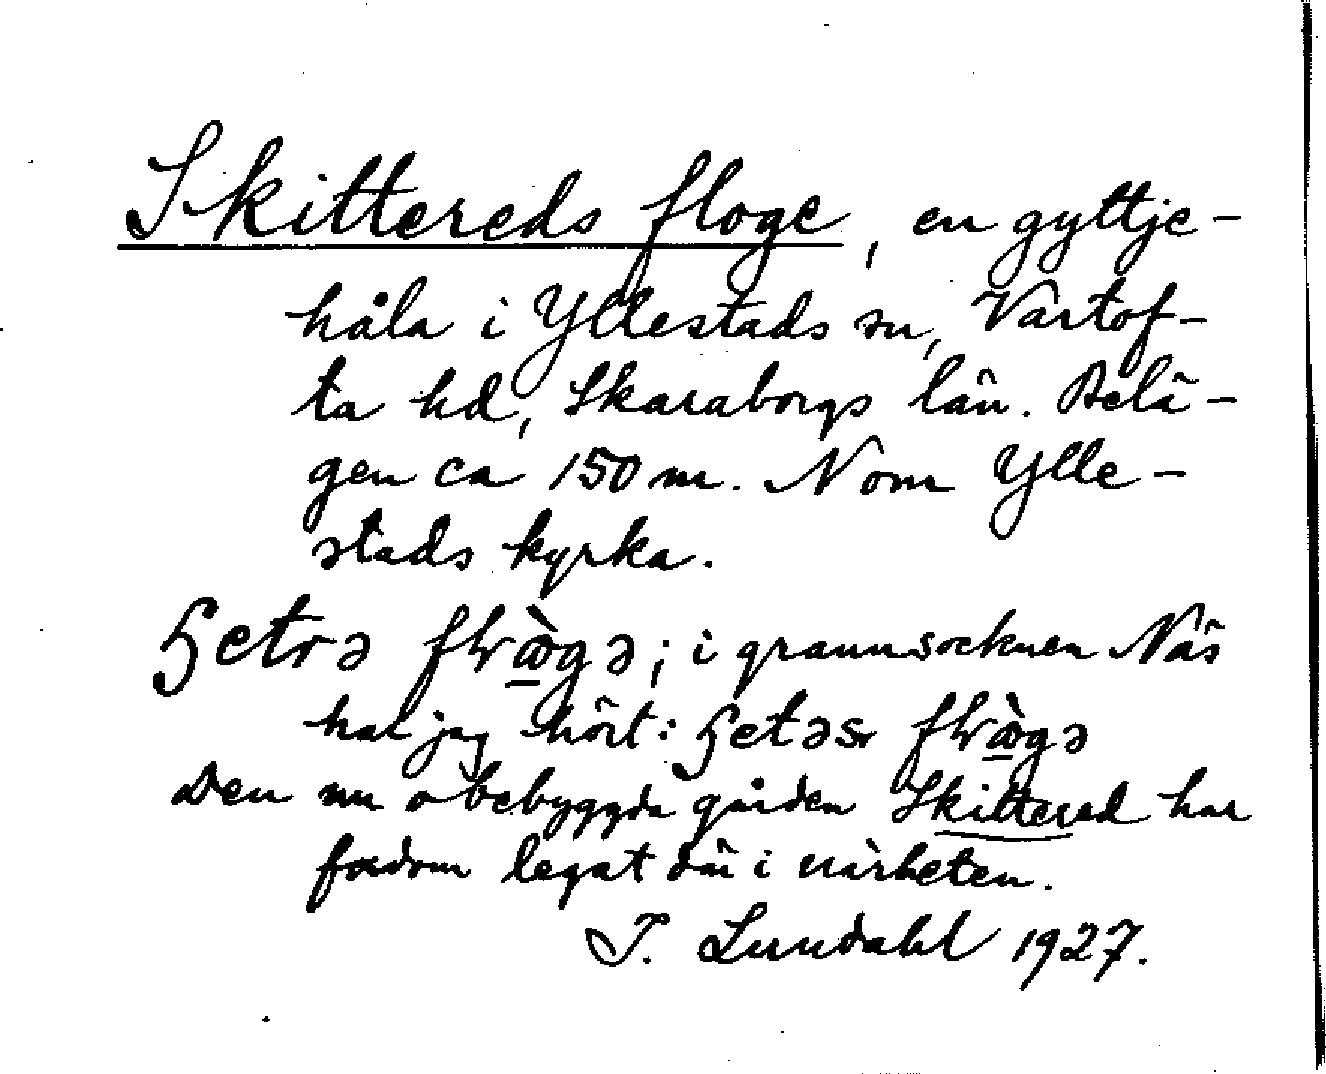 Skittereds floge, en gyttje-
håla i Yllestads sn, Vartof-
ta hd, Skaraborgs län. Belä-
gen ca 150 m. N om Ylle-
stads kyrka.
i grannsocknen Näs
har jag hört:
Den nu obebyggda gården Skittered har
fordom legat där i närheten.
I. Lundahl 1927.